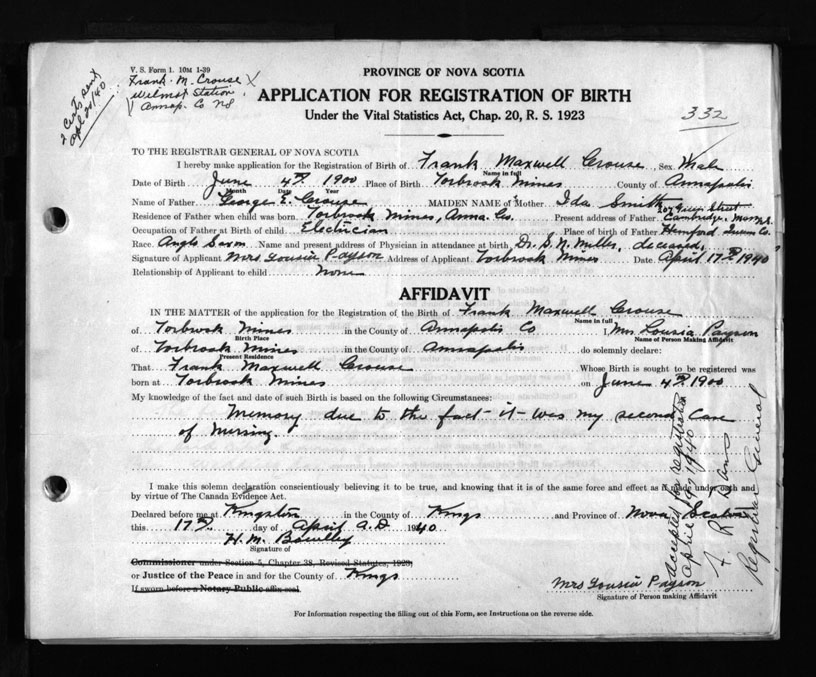 V. S. Form 1. 10M 1-39
Frank. M. Crouse
Wilmot Station
Annap. Co NS
2 Certs sent
Apl 20/40
PROVINCE OF NOVA SCOTIA
APPLICATION FOR REGISTRATION OF BIRTH
Under the Vital Statistics Act, Chap. 20, R. S. 1923
332
TO THE REGISTRAR GENERAL OF NOVA SCOTIA
I hereby make application for the Registration of Birth of Frank Maxwell Crouse, Sex Male
Name in full
Date of Birth June 4th 1900 Place of Birth Torbrook Mines County of Annapolis
Month Date Year
Name of Father George E. Crouse, MAIDEN NAME of Mother Ida Smith
Street
Residence of Father when child was born. Torbrook Mines, Anna. Co. Present address of Father Cambridge, Mass.
Occupation of Father at Birth of child. Electrician Place of birth of Father Hemford Co.
Race. Anglo Saxon Name and present address of Physician in attendance at birth, Dr. S. N. Miller, deceased,
Signature of Applicant Mrs Lousia Payson Address of Applicant Torbrook Mines Date April 17th 1940
Relationship of Applicant to child None
AFFIDAVIT
IN THE MATTER of the application for the Registration of the Birth of Frank Maxwell Crouse
Name in full
of Torbrook Mines in the County of Annapolis Co I, Mrs Lousia Payson
Birth Place Name of Person Making Affidavit
of Torbrook Mines in the County of Annapolis do solemnly declare:
Present Residence
That Frank Maxwell Crouse Whose Birth is sought to be registered was
born at Torbrook Mines on June 4th 1900
My knowledge of the fact and date of such Birth is based on the following Circumstances:
Memory due to the fact it was my second Case
of Nursing.
I make this solemn declaration conscientiously believing it to be true, and knowing that it is of the same force and effect as if made under oath and
by virtue of The Canada Evidence Act.
Declared before me at Kingston in the County of Kings and Province of Nova Scotia
this 17th day of April A.D. 1940
H. M.
Signature of
Commissioner under Section 5, Chapter 38, Revised Statutes, 1923,
or Justice of the Peace in and for the County of Kings
If sworn before a Notary Public affix seal
Mrs Lousia Payson
Signature of Person making Affidavit
For Information respecting the filling out of this Form, see Instructions on the reverse side.
Accepted for registration
April 1940
Registrar General